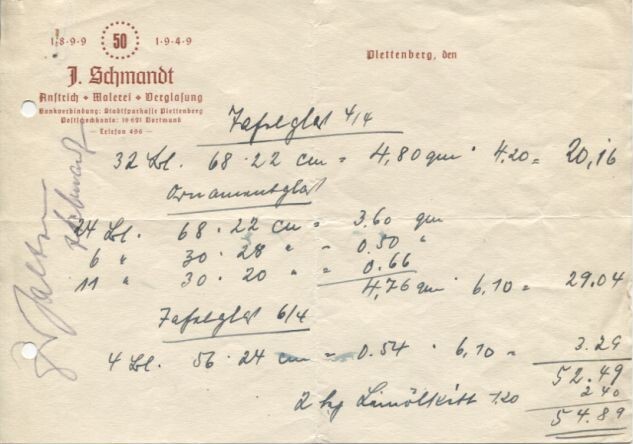 1·8·9·9 50 1·9·4·9
J. Schmandt
Anstrich • Malerei • Verglasung
Bankverbindung: Stadtsparkasse Plettenberg
Postscheckkonto: 19621 Dortmund
— Telefon 496 —
Plettenberg, den
Tafelglas 4/4
32 Bl. 68 · 22 cm = 4,80 qm · 4.20 = 20,16
Ornamentglas
24 Bl. 68 · 22 cm = 3.60 qm
6 " 30 · 28 " = 0.50 "
11 " 30 · 20 " = 0.66
4,76 qm · 6,10 = 29.04
Tafelglas 6/4
4 Bl. 56 · 24 cm = 0.54 · 6,10 = 3.29
52.49
2 kg Leinölkitt 1.20 2 40
54.89